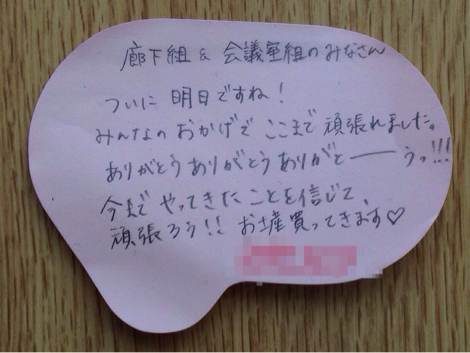 廊下組 & 会議室組のみなさん
ついに 明日ですね!
みんなの おかげで ここまで 頑張れました。
ありがとう ありがとう ありがと――うっ!!!
今まで やってきた ことを信じて、
頑張ろう!! お土産買ってきます♡